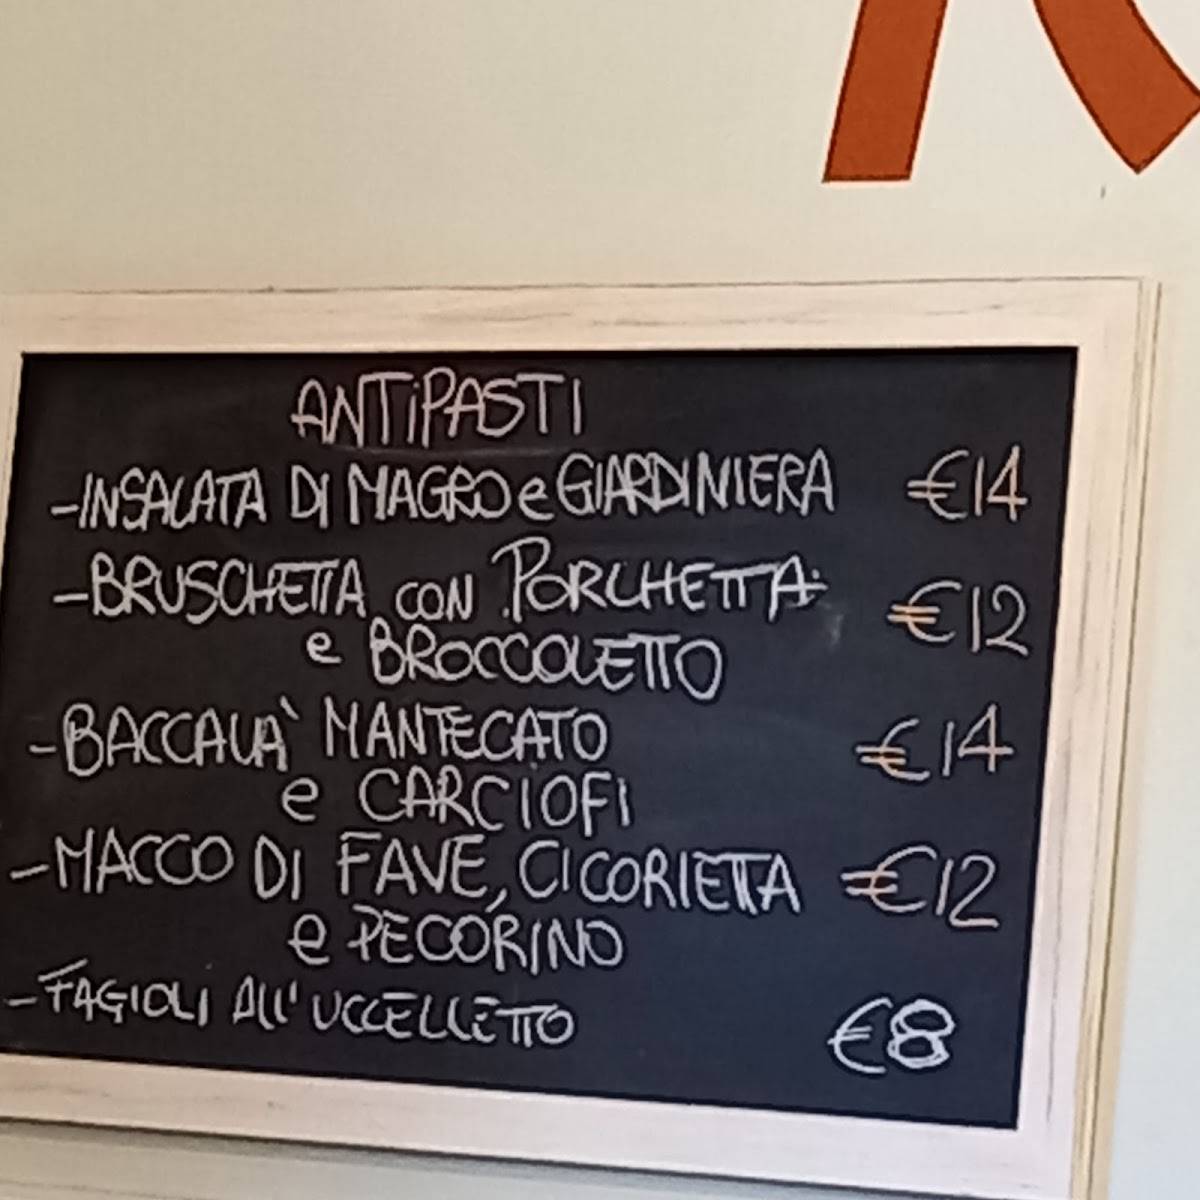 ANTIPASTI
-INSALATA DI MAGRO e GIARDINIERA €14
-BRUSCHETTA CON PORCHETTA
e BROCCOLETTO €12
-BACCALA' MANTECATO €14
e CARCIOFI
-MACCO DI FAVE, CICORIETTA €12
e PECORINO
-FAGIOLI ALL'UCCELLETTO €8